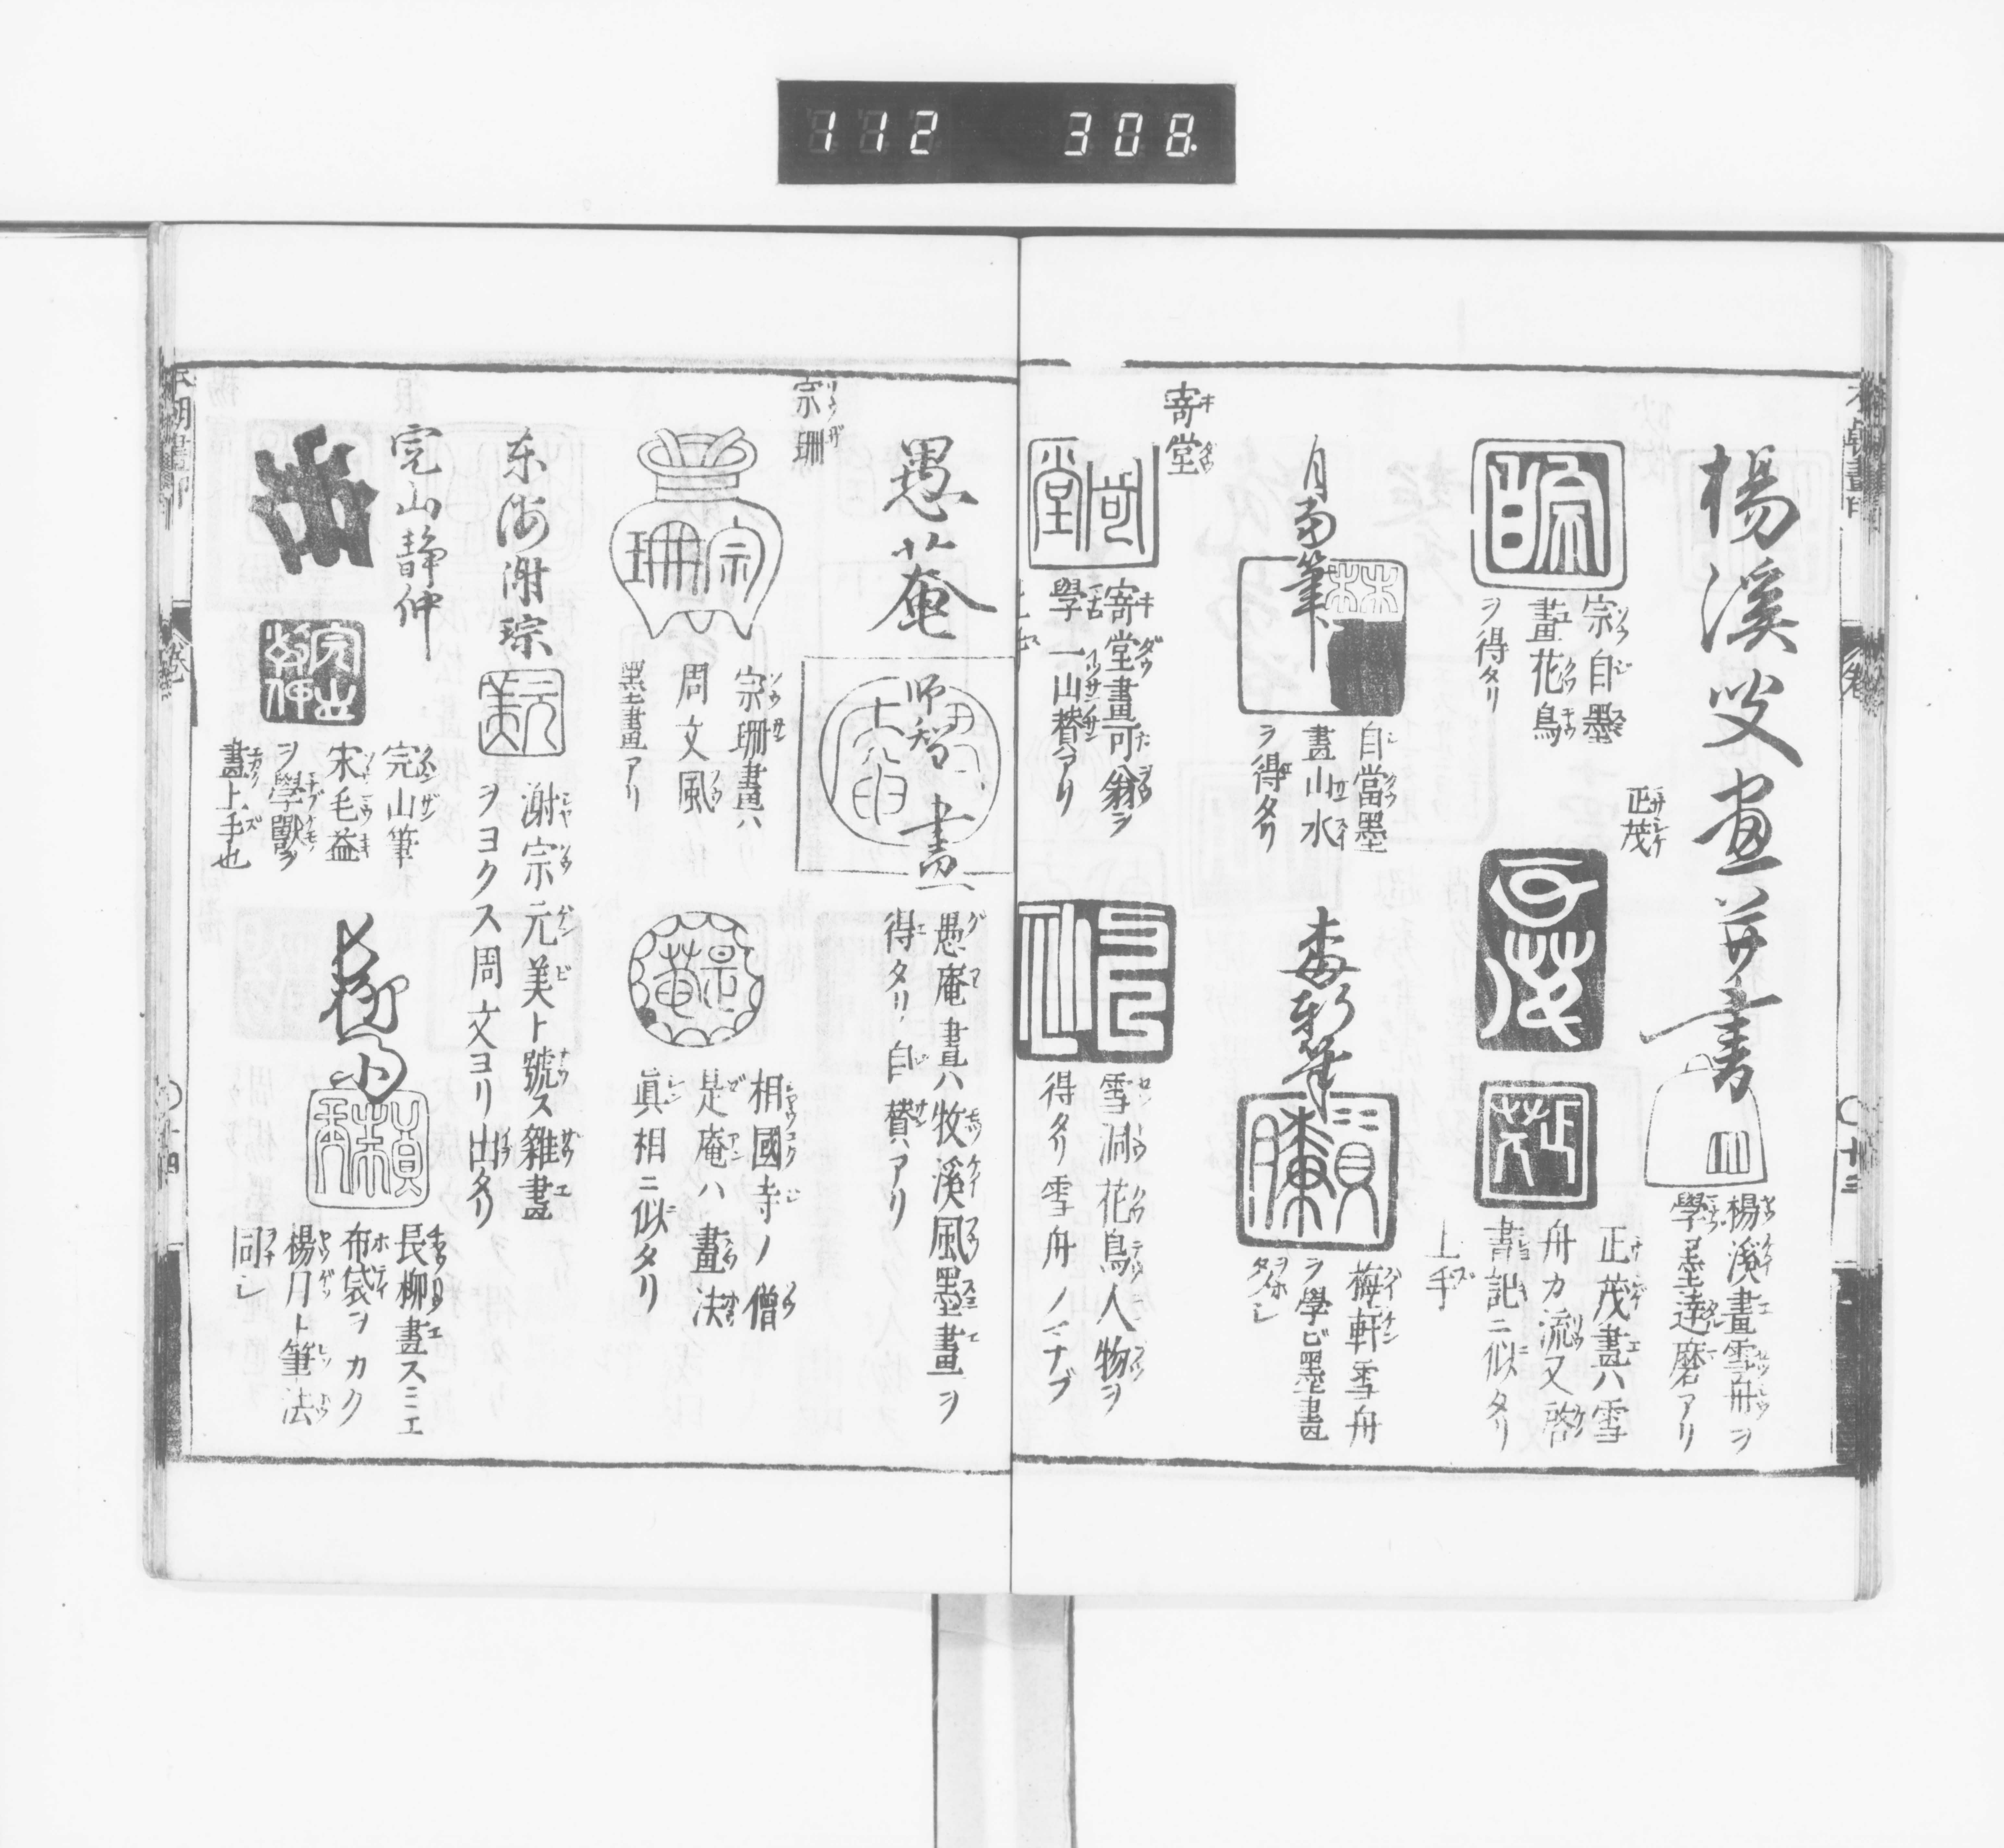 112 308
楊溪叟画并書
楊溪畫雪舟ヲ
學墨達磨アリ
宗自墨
畫花鳥
ヲ得タリ
正茂
正茂畫ハ雪
舟カ流又啓
書記ニ似タリ
上手
自當墨
畫山水
ヲ得タリ
梅軒雪舟
ヲ學ビ墨畫
寄堂
寄堂畫可翁ヲ
學一山賛アリ
花鳥人物ヲ
得タリ雪舟ノ
愚菴
師智
畫
愚庵畫ハ牧溪風墨畫ヲ
得タリ自賛アリ
宗珊
宗珊
宗珊畫ハ
周文風
墨畫アリ
是菴
相國寺ノ僧
是庵ハ畫法
眞相ニ似タリ
謝宗元美ト號ス雜畫
ヲヨクス周文ヨリ出タリ
完山静仲
完山筆
宋毛益
ヲ學獸ヲ
畫上手也
長柳畫スミエ
布袋ヲカク
楊月ト筆法
同シ